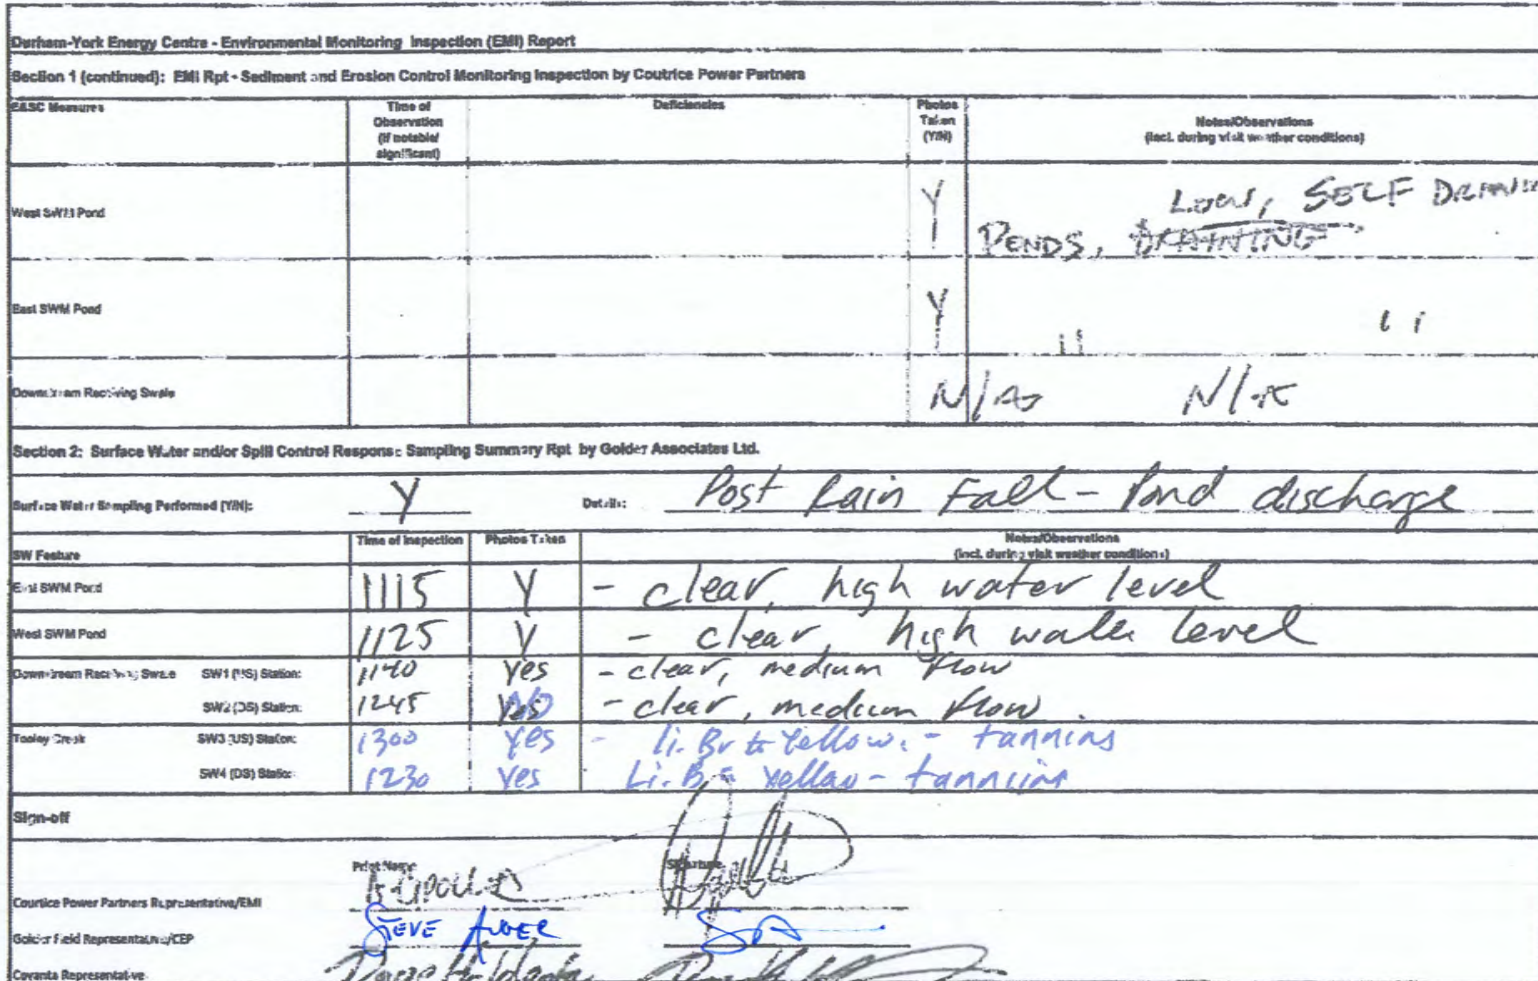 Durham-York Energy Centre - Environmental Monitoring Inspection (EMI) Report
Section 1 (continued): EMI Rpt - Sediment and Erosion Control Monitoring Inspection by Coutrice Power Partners
E&SC Measures
Time of Observation (if notable/ significant)
Deficiencies
Photos Taken (Y/N)
Notes/Observations (incl. during visit weather conditions)
West SWM Pond Y LOW, SELF
PONDS, DRAINING
East SWM Pond Y 11 11
Downstream Receiving Swale N/A N/A
Section 2: Surface Water and/or Spill Control Response Sampling Summary Rpt by Golder Associates Ltd.
Surface Water Sampling Performed (Y/N): Y Details: Post Rain Fall - Pond discharge
SW Feature Time of Inspection Photos Taken Notes/Observations (incl. during visit weather conditions)
East SWM Pond 1115 Y - clear, high water level
West SWM Pond 1125 Y - clear, high water level
Downstream Receiving Swale SW1 (US) Station: 1140 Yes - clear, medium flow
SW2 (DS) Station: 1245 No - clear, medium flow.
Tooley Creek SW3 (US) Station: 1300 Yes - li. Br to Yellow. - tannins
SW4 (DS) Station: 1230 Yes Li. Br Yellow - tannins
Sign-off
Print Name Signature
Courtice Power Partners Representative/EMI
Golder Field Representative/CEP STEVE
Covanta Representative